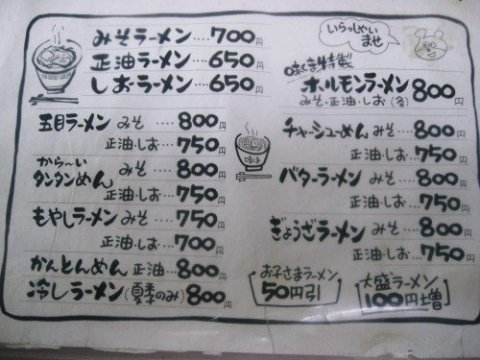 みそラーメン…700円
正油ラーメン…650円
しおラーメン…650円
五目ラーメン みそ…800円
正油・しお…750円
から〜い
タンタンめん みそ…800円
正油・しお…750円
もやしラーメン みそ…750円
正油・しお…700円
かんとんめん 正油…800円
冷しラーメン(夏季のみ)800円
いらっしゃい
ませ
味くま特製
ホルモンラーメン 800円
みそ・正油・しお(各)
チャーシューめん みそ…800円
正油・しお…750円
バターラーメン みそ…800円
正油・しお…750円
ぎょうざラーメン みそ…800円
正油・しお…750円
お子さまラーメン
50円引
大盛ラーメン
100円増